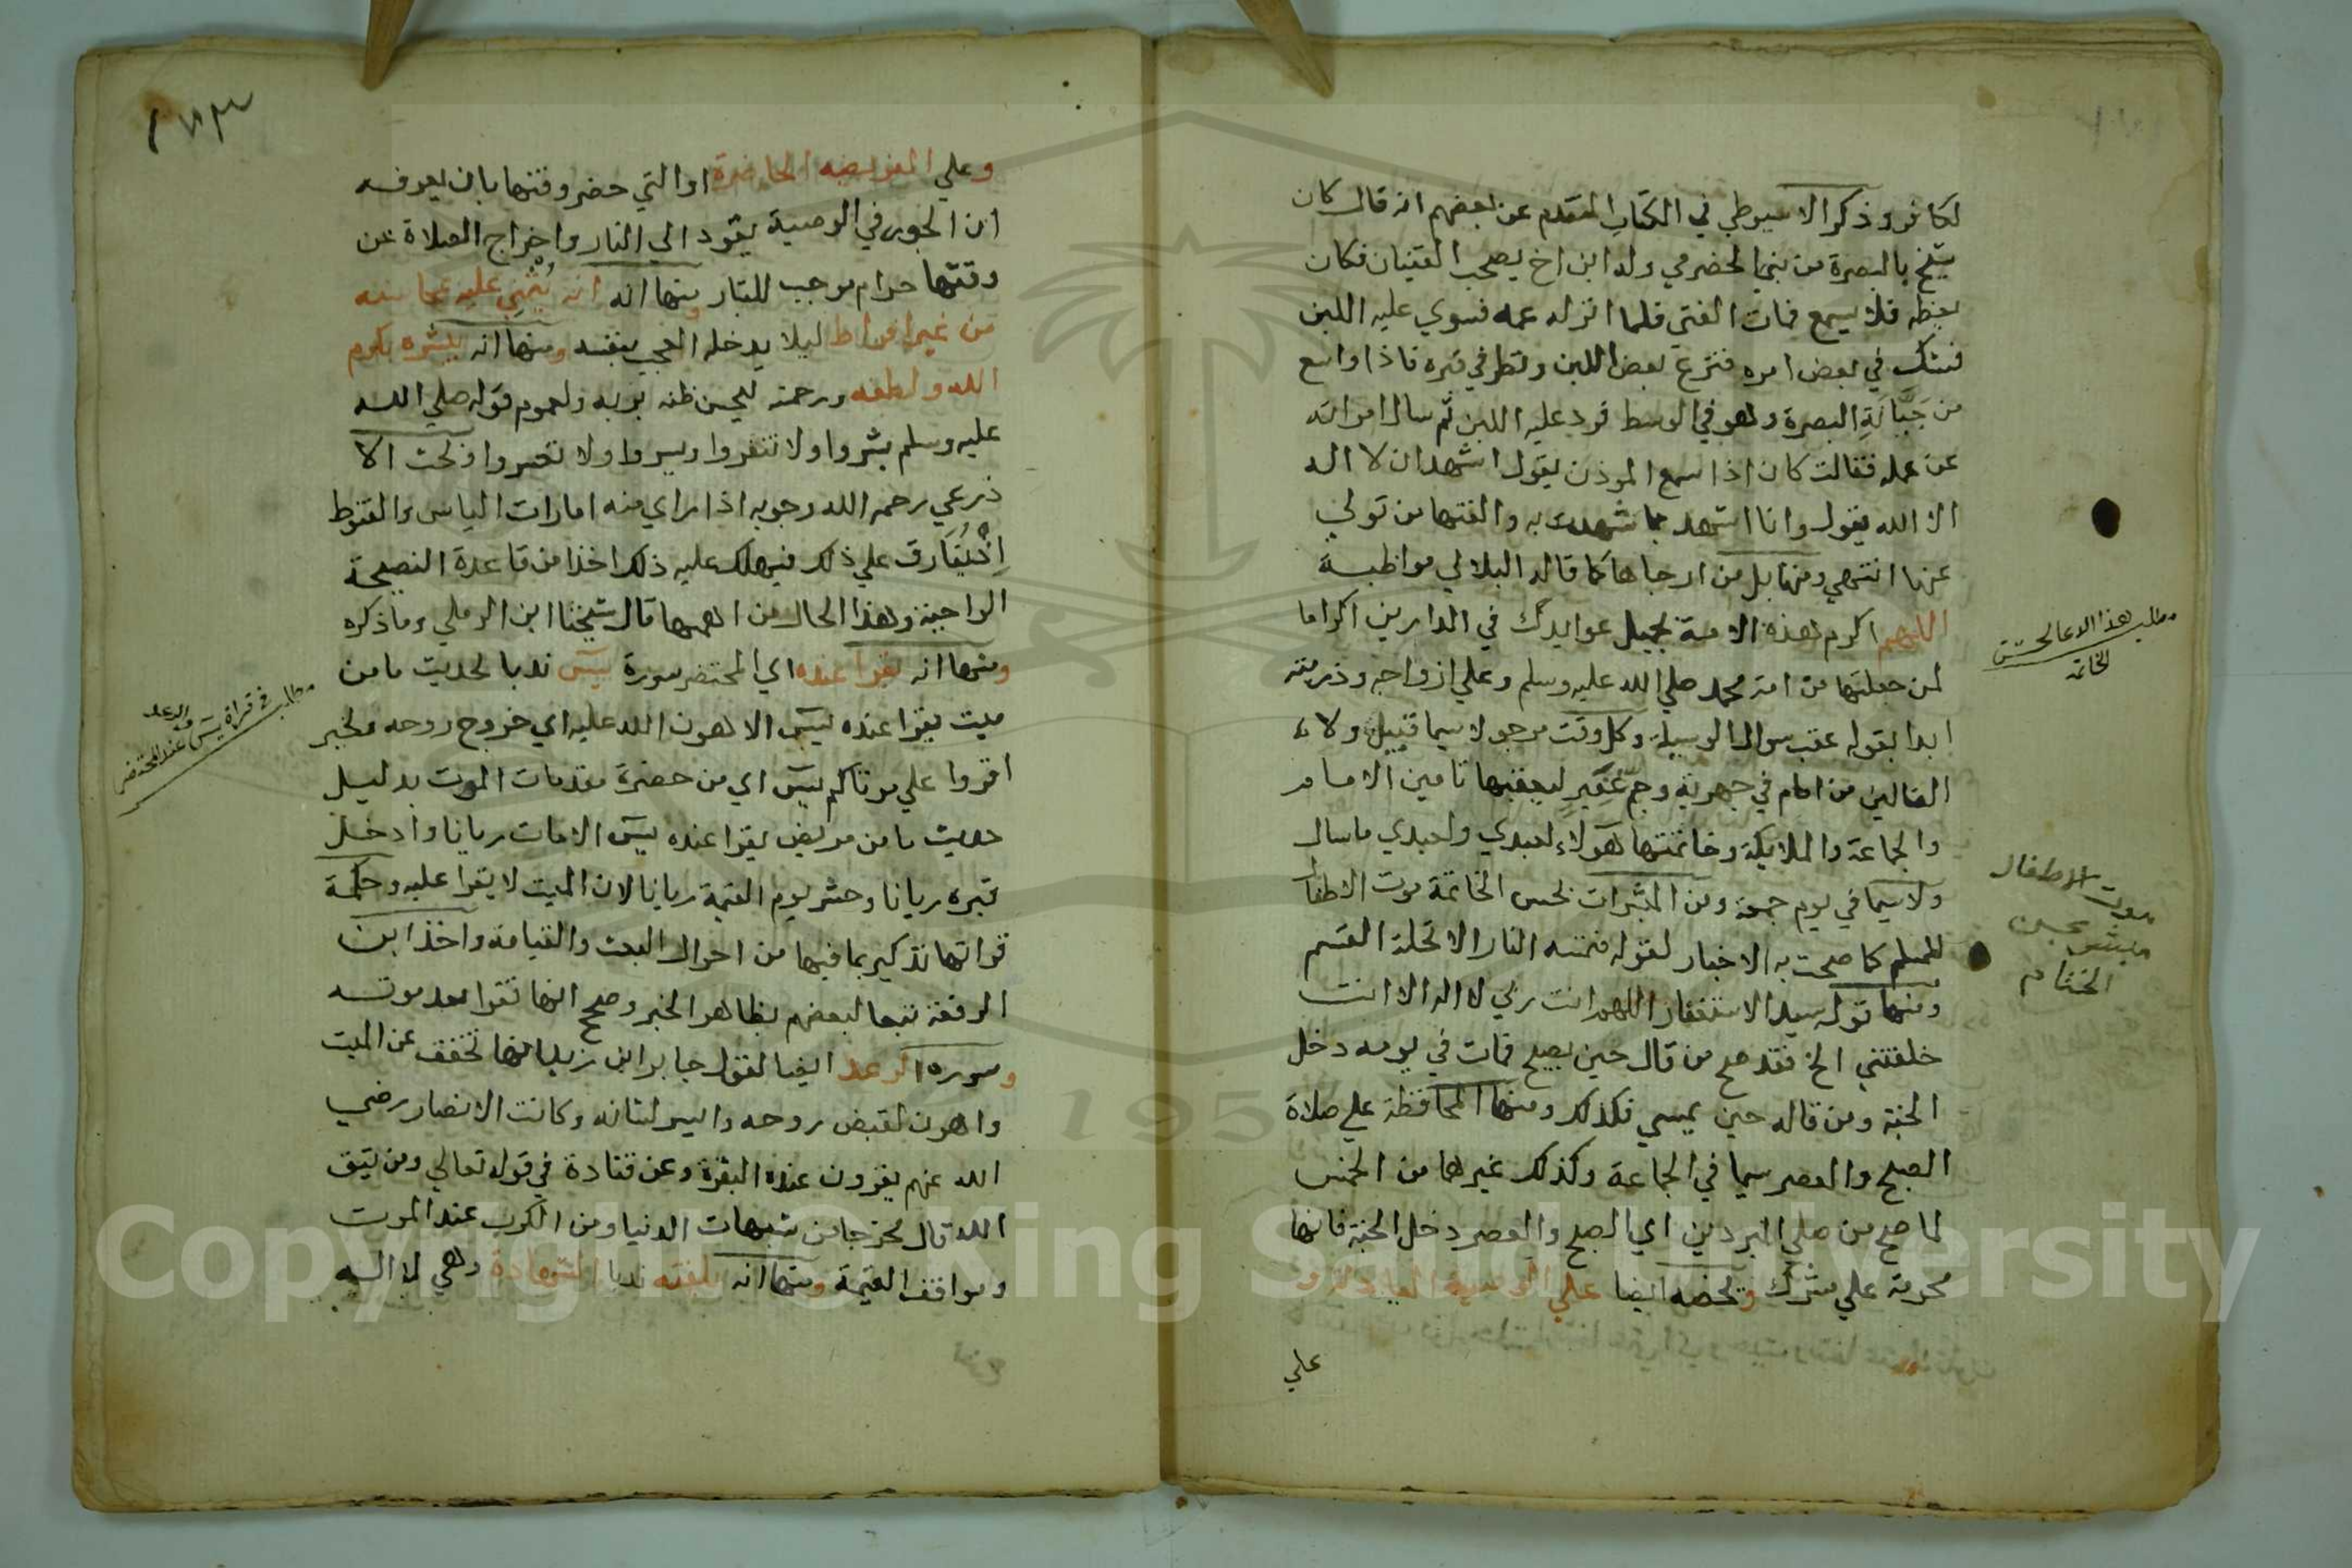 لكافور وذكر الاسيوطي في الكتاب المتقدم عن بعضهم انه قال كان
شيخ بالبصرة من بني الحضرمي وله ابن اخ يصحب الفتيان فكان
يعظه فلا يسمع فمات الفتى فلما انزله عمه فسوي عليه اللبن
فشك في بعض امره فنزع بعض اللبن ونظر في قبره فاذا واسع
من جَبَّانَةِ البصرة وهو في الوسط فرد عليه اللبن ثم سال امراته
عن عمله فقالت كان اذا سمع الموذن يقول اشهد ان لا اله
الا الله يقول وانا اشهد بما شهدت به والقنها من تولى
عنها انتهي ومنها بل من ارجاها كما قاله البلالي مواظبة
اللهم اكرم هذه الامة بجميل عوايدك في الدارين اكراما
لمن جعلتها من امة محمد صلي الله عليه وسلم وعلي ازواجه وذريته
ابدا بقوله عقب سوال الوسيلة وكل وقت مرجو لا سيما قبيل ولا
الضالين من امام في جهرية وجم غفير ليعقبها تامين الامام
والجماعة والملايكة وخاتمتها هولاء لعبدي ولعبدي ما سال
ولاسيما في يوم جمعة ومن المبشرات بحسن الخاتمة موت الاطفال
للمسلم كما صحت به الاخبار لقوله فتمسه النار الا تحلة القسم
ومنها قوله سيد الاستغفار اللهم انت ربي لا اله الا انت
خلقتني الخ فقد صح من قال حين يصبح فمات في يومه دخل
الجنة ومن قاله حين يمسي فكذلك ومنها المحافظة علي صلاة
الصبح والعصر سيما في الجماعة وكذلك غيرهما من الخمس
لما صح من صلي البردين اي الصبح والعصر دخل الجنة فانها
محرمة علي مشرك ويحضه ايضا علي الوصية العادلة و
علي
مطلب هذا الدعا لحسن
الخاتمة
موت الاطفال
مبشر بحسن
الختام
١٧٣
وعلي الفريضه الحاضرة او التي حضر وقتها بان يعرفه
ان الجور في الوصية يقود الي النار واخراج الصلاة عن
وقتها حرام موجب للنار ومنها انه يُثْنِي عليه بمحاسنه
من غير افراط ليلا يدخله العجب بنفسه ومنها انه يبشره بكرم
الله ولطفه ورحمته ليحسن ظنه بربه ولعموم قوله صلي الله
عليه وسلم بشروا ولا تنفروا ويسروا ولا تعسروا وبحث الا
ذرعي رحمه الله وجوبه اذا راي منه امارات الياس والقنوط
اذ يُفَارق علي ذلك فيهلك عليه ذلك اخذا من قاعدة النصيحة
الواجبة وهذا الحال من اهمها قال شيخنا ابن الرملي وما ذكره
ومنها انه يقرا عنده اي المحتضر سورة يس ندبا لحديث ما من
ميت يقرا عنده يس الا هون الله عليه اي خروج روحه ولخبر
اقروا علي موتاكم يس اي من حضره مقدمات الموت بدليل
حديث ما من مريض يقرا عنده يس الا مات ريانا وادخل
قبره ريانا وحشر يوم القيمة ريانا لان الميت لا يقرا عليه وحكمة
قراتها تذكير بما فيها من احوال البعث والقيامة واخذ ابن
الرفعة تبعا لبعضهم بظاهر الخبر وصحح انها تقرا بعد موته
وسورة الرعد ايضا لقول جابر ابن زيد انها تخفف عن الميت
واهون لقبض روحه وايسر لشانه وكانت الانصار رضي
الله عنهم يقرون عنده البقرة وعن قتادة في قوله تعالي ومن يتق
الله قال مخرجا من شبهات الدنيا ومن الكرب عند الموت
ومواقف القيمة ومنها انه يلقنه ندبا الشهادة وهي لا اله
مطلب في قراة يس
والرعد
عند المحتضر
Copyright © King Saud University
195